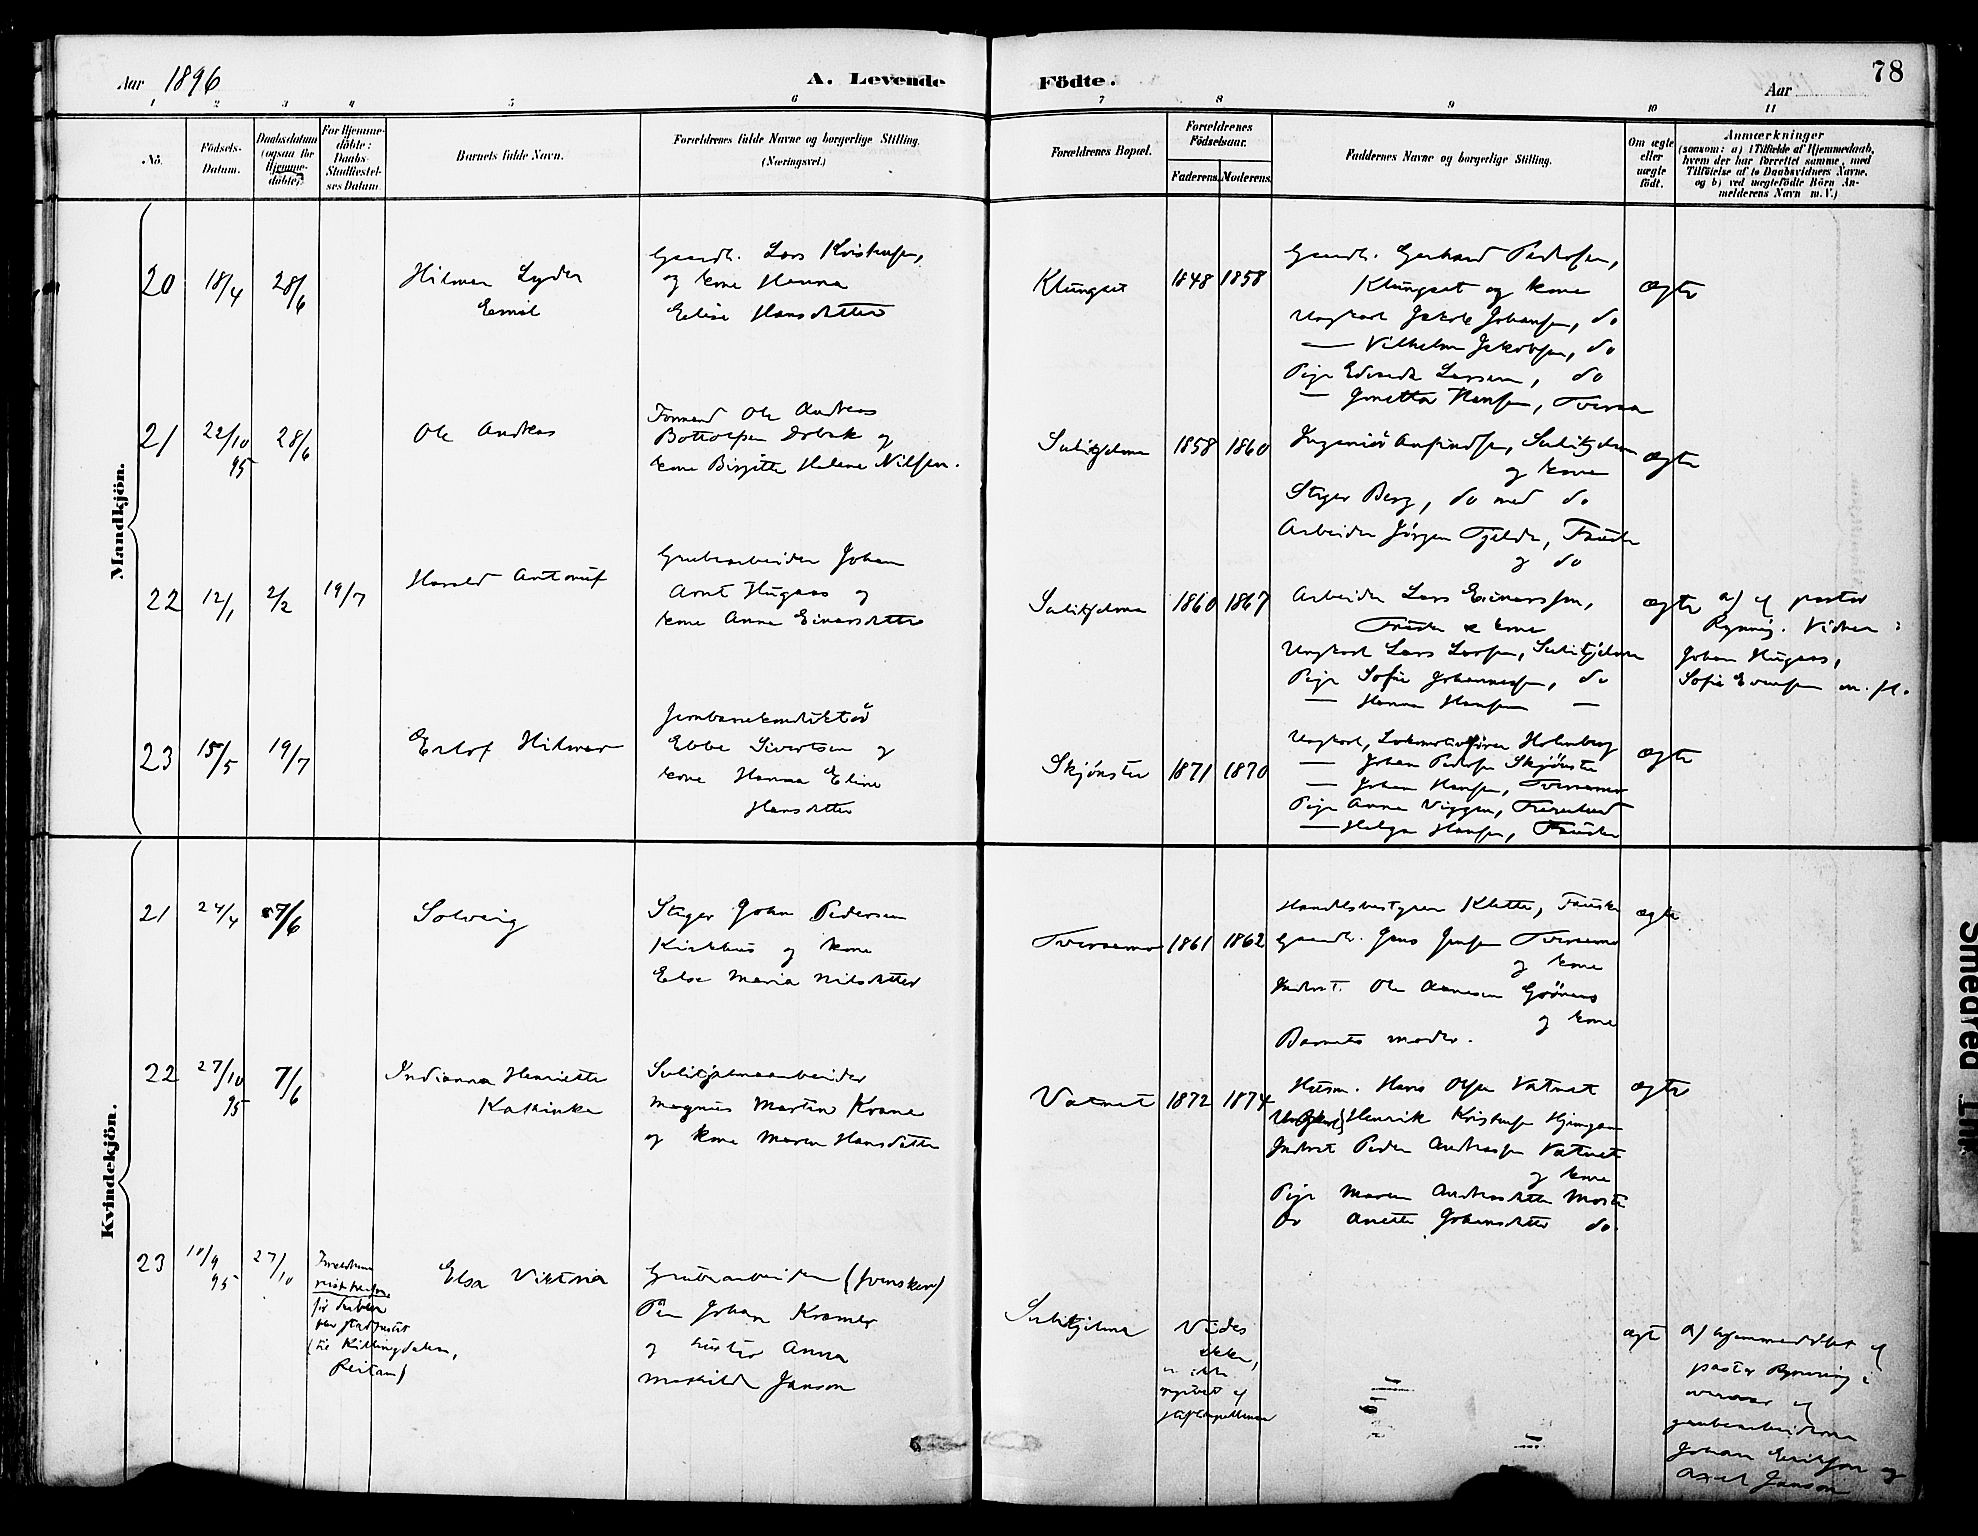 Aar 1896
A. Levende
Födte.
Aar
78
1 2 3 4 5 6 7 8 9 10 11
No.
Födsels-
Datum.
Daabsdatum
(ogsaa for
Hjemme-
döbte).
For Hjemme-
döbte:
Daabs-
Stadfæstel-
ses Datum
Barnets fulde Navn.
Forældrenes fulde Navne og borgerlige Stilling.
(Næringsvei.)
Forældrenes Bopæl.
Forældrenes
Födselsaar.
Faderens. Moderens.
Faddernes Navne og borgerlige Stilling.
Om ægte
eller
uægte
födt.
Anmærkninger
(saasom: a) i Tilfælde af Hjemmedaab,
hvem der har forrettet samme, med
Tilföielse af to Daabsvidners Navne,
og b) ved uægtefödte Börn An-
melderens Navn m. V.)
Mandkjön.
20
18/4
28/6
Hilmar Lyder
Emil
Gaardb. Lars Kristensen,
og kone Hanna
Elise Hansdatter
Klungset
1848 1858
Gaardb. Gerhard Pedersen,
Klungset og kone
Ungkarl Jakob Johansen, do
— Vilhelm Jakobsen, do
Pige Edvarda Larsen, do
— Hansen, Tveraa
ægte
21
22/10
95
28/6
Ole Andreas
Formand Ole Andreas
Bottolfsen og
kone Birgitte Helene Nilssen.
Sulitjelma
1858 1860
Ingeniør Anfindsen, Sulitjelma
og kone
Stiger Berg, do med do
Arbeider Jörgen Tjeldr, Fauske
og do
ægte
22
12/1
2/2
19/7
Harald Antonius
Grubearbeider Johan
Arnt Hugaas og
kone Anna Einarsdatter
Sulitjelma
1860 1867
Arbeider Lars Einarssen,
Fauske & kone
Ungkarl Lars Larsen, Sulitjelma
Pige Sofie Johannessen, do
— Hanna Hansen —
ægte
a) af pastor
Rynning. Vidner:
Johan Hugaas,
Sofie Evensen m. fl.
23
15/5
19/7
Erlof Hilmar
Jernbanekonduktør
Ebbe Sivertsen og
kone Hanna Eline
Hansdatter
Skjönstu
1871 1870
Ungkarl, Lokomotivfører Holmberg
— Johan Pedersen Skjönstu
— Johan Hansen, Tveraamo
Pige Anna Viggen,
— Helga Hansen, Fauske
ægte
Kvindekjön.
21
24/4
7/6
Solveig
Stiger John Pedersen
Kirkhus og kone
Else Maria Nilsdatter
Tveraamo
1861 1862
Handelsbestyrer Klette, Fauske
Gaardb. Jens Jensen Tveraamo
og kone
Inderst. Ole Arnesen
og kone
Barnets moder.
ægte
22
27/10
95
7/6
Indianna Henriette
Kathinka
Sulitjelmaarbeider
Magnus Martin Krane
og kone Maren Hansdatter
Vatnet
1872 1874
Husm. Hans Olsen Vatnet
Ungkarl Henrik Kristensen
Inderst Peder Andreassen Vatnet
og kone
Pige Maren Andreasdatter
Do Anette Johansdatter do
ægte
23
10/9
95
27/10
Forældrene
reist herfra
før daaben
blev stadfæstet
(til Killingdalen,
Reitan)
Elsa Viktoria
Grubearbeider (svensker)
Per Johan Kramer
og hustro Anna
Mathilda Janson
Sulitjelma
Vides
ikke,
er ikke
opgivet af
ægte
a) hjemmedöbt af
pastor Rynning i
overvær af
grubearbeiderne
Johan Erikson og
Axel Janson
Smeared Ink